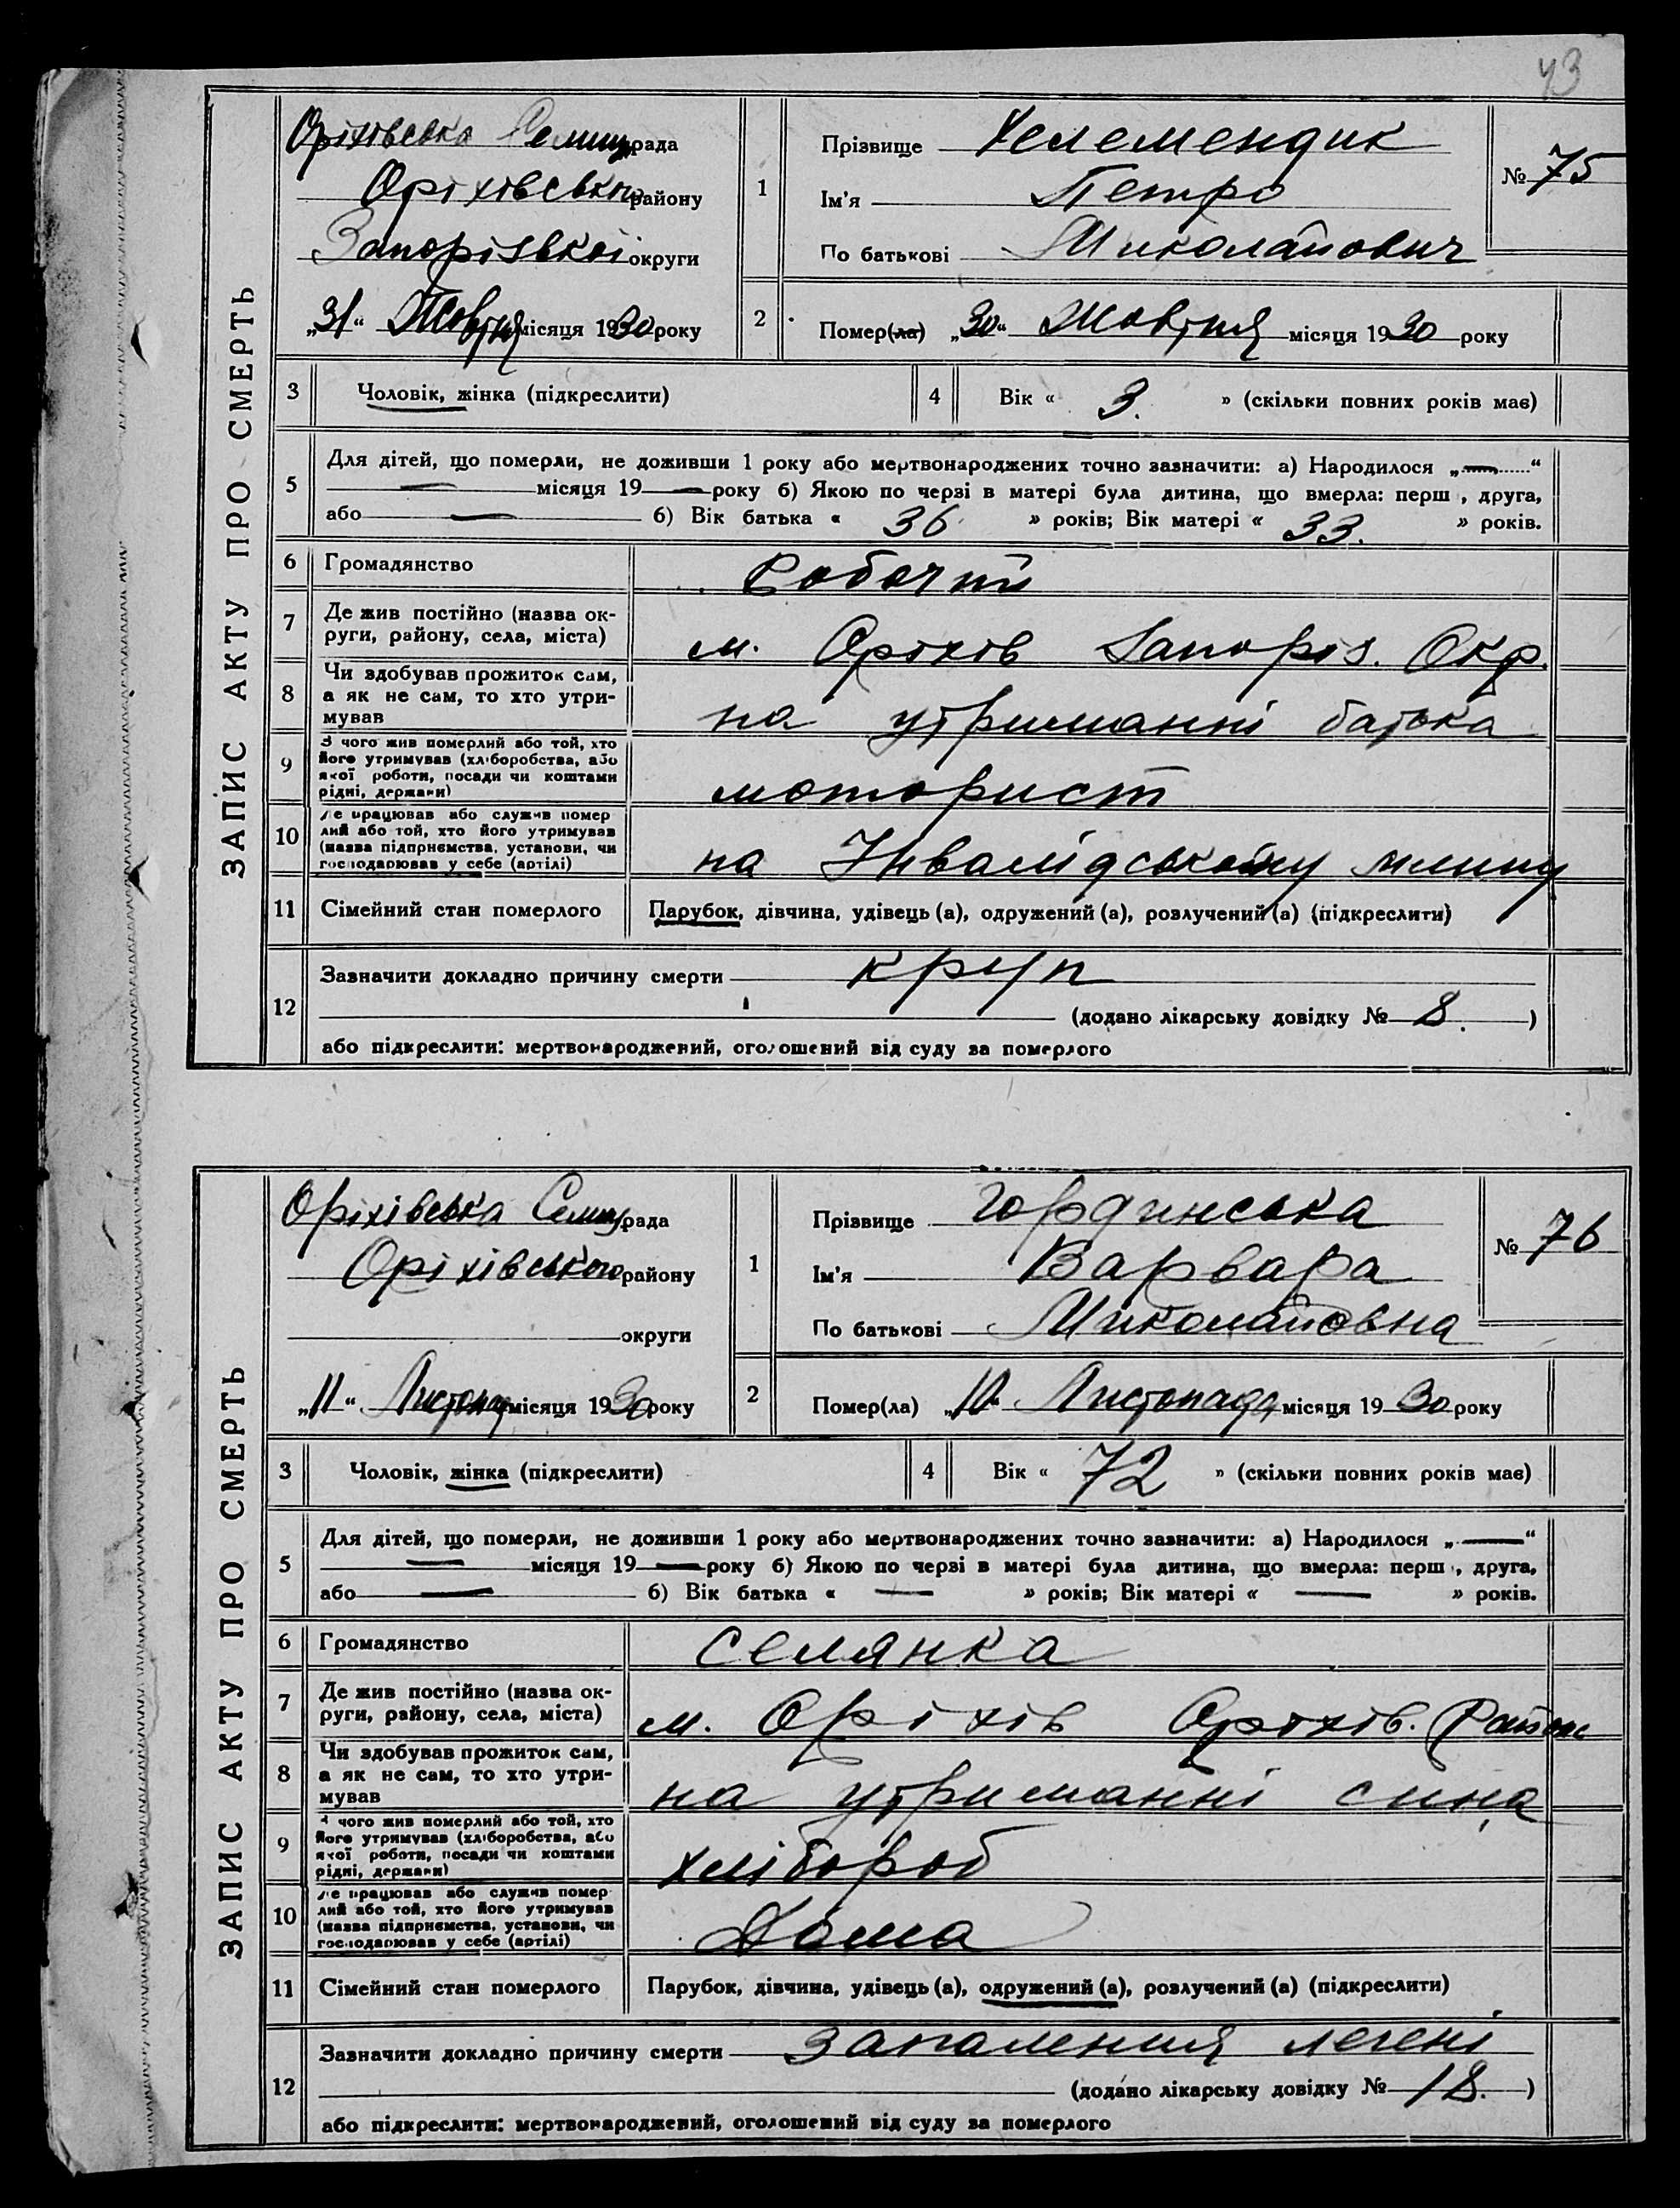 43
ЗАПИС АКТУ ПРО СМЕРТЬ
Оріхівська Селищ рада
Оріхівського району
Запорізької округи
„31“ Жовтня місяця 1930 року
1
Прізвище Келемендик
Ім'я Петро
По батькові Миколайович
№ 75
2
Помер(ла) „30“ Жовтня місяця 1930 року
3 Чоловік, жінка (підкреслити)
4 Вік « 3. » (скільки повних років має)
5 Для дітей, що померли, не доживши 1 року або мертвонароджених точно зазначити: а) Народилося „—“
— місяця 19— року б) Якою по черзі в матері була дитина, що вмерла: перш , друга,
або — б) Вік батька « 36 » років; Вік матері « 33. » років.
6 Громадянство Робочий
7 Де жив постійно (назва ок-
руги, району, села, міста)
м. Оріхів Запоріз. Окр.
8 Чи здобував прожиток сам,
а як не сам, то хто утри-
мував
на утриманні батька
9 З чого жив померлий або той, хто
його утримував (хліборобства, або
якої роботи, посади чи коштами
рідні, держави)
моторист
10 Де працював або служив помер
лий або той, хто його утримував
(назва підприємства, установи, чи
господарював у себе (артілі)
на Інвалідському млину
11 Сімейний стан померлого Парубок, дівчина, удівець (а), одружений (а), розлучений (а) (підкреслити)
12 Зазначити докладно причину смерти круп
(додано лікарську довідку № 8. )
або підкреслити: мертвонароджений, оголошений від суду за померлого
ЗАПИС АКТУ ПРО СМЕРТЬ
Оріхівська Селищ рада
Оріхівського району
округи
„11“ Листопад місяця 1930 року
1
Прізвище Гординська
Ім'я Варвара
По батькові Миколайовна
№ 76
2
Помер(ла) „10“ Листопада місяця 1930 року
3 Чоловік, жінка (підкреслити)
4 Вік « 72 » (скільки повних років має)
5 Для дітей, що померли, не доживши 1 року або мертвонароджених точно зазначити: а) Народилося „—“
— місяця 19— року б) Якою по черзі в матері була дитина, що вмерла: перш , друга,
або — б) Вік батька « — » років; Вік матері « — » років.
6 Громадянство селянка
7 Де жив постійно (назва ок-
руги, району, села, міста)
м. Оріхів Оріхів. Району
8 Чи здобував прожиток сам,
а як не сам, то хто утри-
мував
на утриманні сина
9 З чого жив померлий або той, хто
його утримував (хліборобства, або
якої роботи, посади чи коштами
рідні, держави)
хлібороб
10 Де працював або служив помер
лий або той, хто його утримував
(назва підприємства, установи, чи
господарював у себе (артілі)
Дома
11 Сімейний стан померлого Парубок, дівчина, удівець (а), одружений (а), розлучений (а) (підкреслити)
12 Зазначити докладно причину смерти запалення легені
(додано лікарську довідку № 18. )
або підкреслити: мертвонароджений, оголошений від суду за померлого